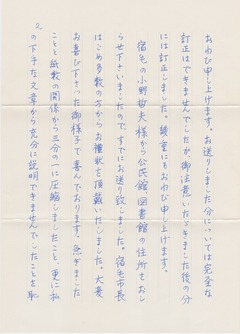 おわび申し上げます。お送りしました分については完全な
訂正はできませんでしたが、御注意いただきました後の分
には訂正しました。幾重にもおわび申し上げます。
宿毛の小野哲夫様から公民館、図書館の住所をおし
らせ下さいましたので、すでにお送り致しました。宿毛市長
はじめ多数の方からお礼状を頂戴いたしました。大変
お喜び下さった御様子で喜んでおります。急ぎました
ことと紙数の関係から三分の一に圧縮しましたこと、更に私
の下手な文章から充分に説明できませんでしたことを恥
2